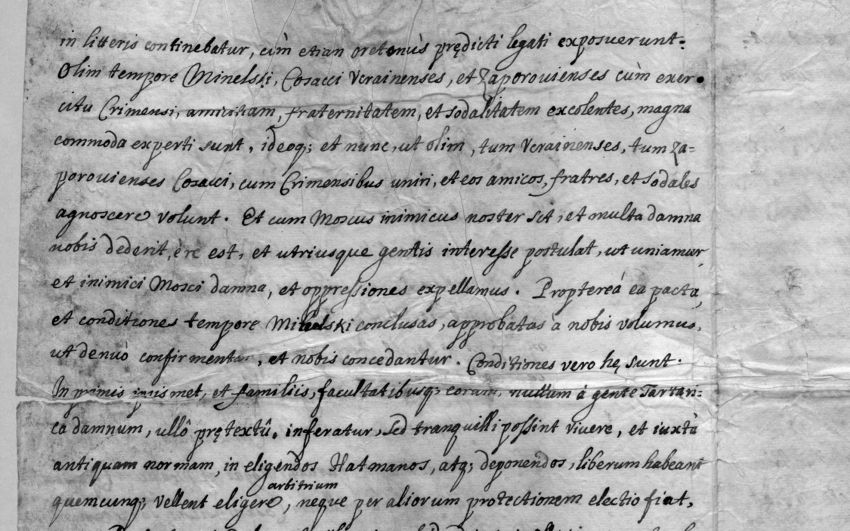 in litteris continebatur, cùm etian oretenùs prędicti legati exposuerunt.
Olim tempore Minelski, Cosacci Vcrainenses, et Zaporouienses cùm exer=
citu Crimensi, amicitiam, fraternitatem, et sodalitatem excolentes, magna
commoda experti sunt, ideoq; et nunc, ut olim, tum Vcrainenses, tum Za=
porouienses Cosacci, cum Crimensibus uniri, et eos amicos, fratres, et sodales
agnoscere volunt. Et cum Moscus inimicus noster sit, et multa damna
nobis dederit, è re est, et utriusque gentis interesse postulat, ut uniamur,
et inimici Mosci damna, et oppressiones expellamus. Proptereá ea pacta,
et conditiones tempore Mihelski conclusas, approbatas à nobis volumus,
ut denuò confirmentur, et nobis concedantur. Conditiones vero hę sunt.
In primis ipsismet, et familiis, facultatibusq; eorum, nullum á gente Tartari=
ca damnum, ullô prętextû, inferatur, sed tranquilli possint vivere, et iuxtà
antiquam normam, in eligendos Hatmanos, atq; deponendos, liberum habeant
arbitrium
quemcunq; vellent eligere, neque per aliorum protectionem electio fiat,